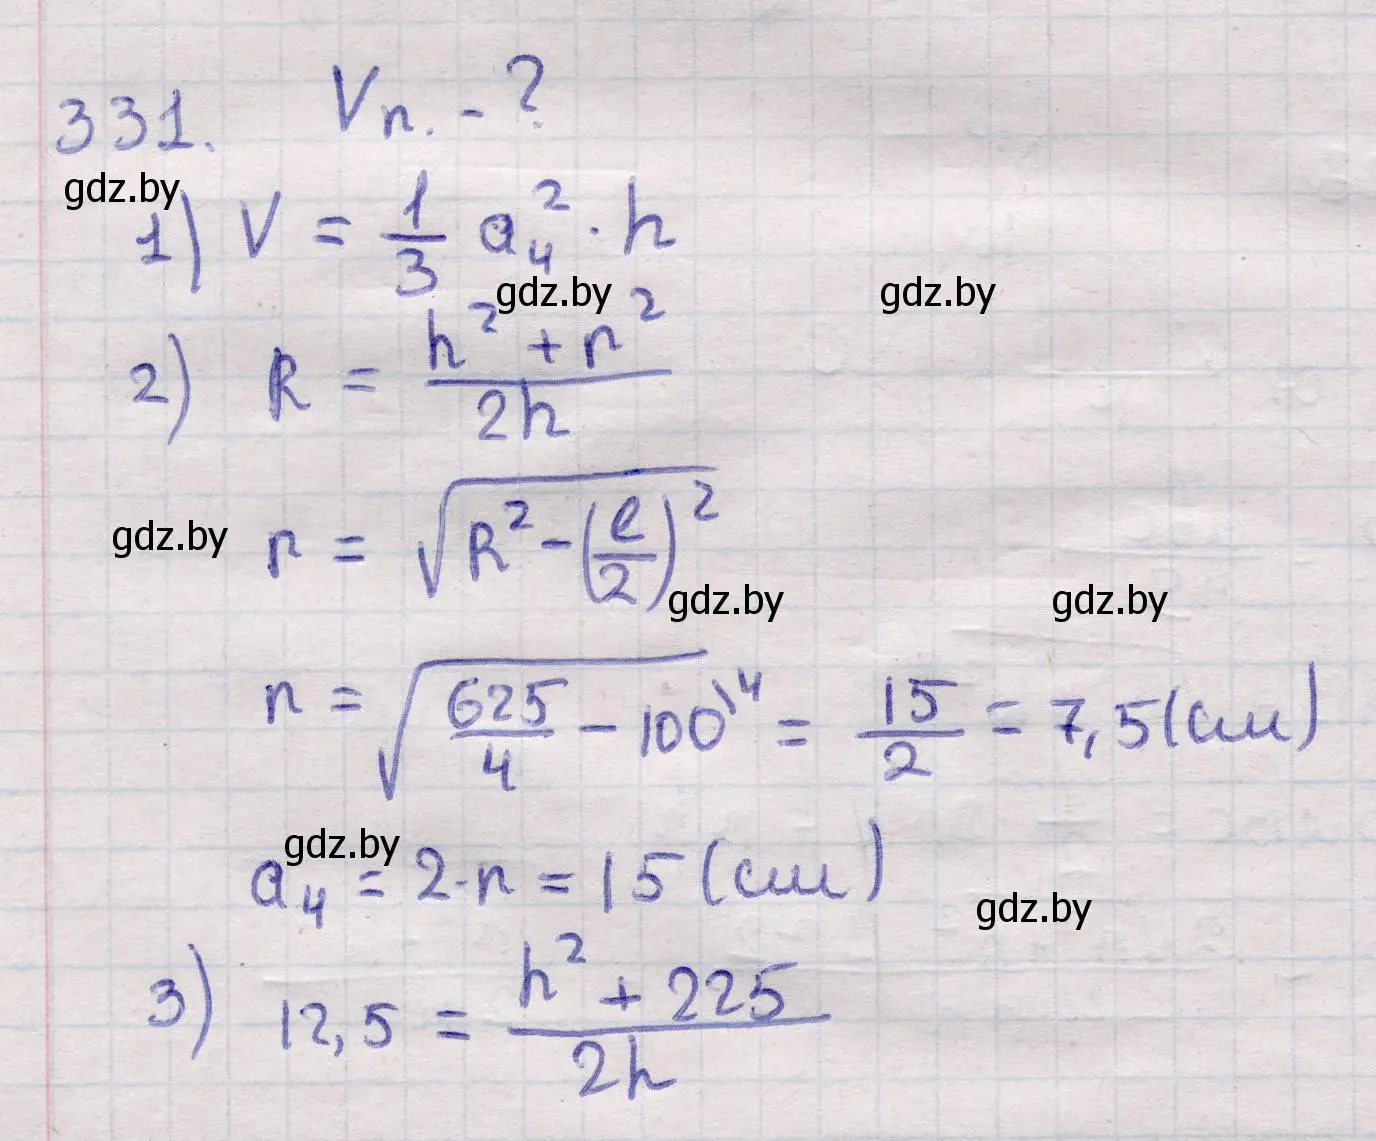 331. Vп. - ?
gdz.by
1) V = 1/3 a₄² · h
gdz.by gdz.by
2) R = (h² + r²)/(2h)
gdz.by r = √(R² - (l/2)²)
gdz.by gdz.by
r = √(625/4 - 100\⁴) = 15/2 = 7,5 (см)
gdz.by
a₄ = 2·r = 15 (см)
gdz.by
3) 12,5 = (h² + 225)/(2h)